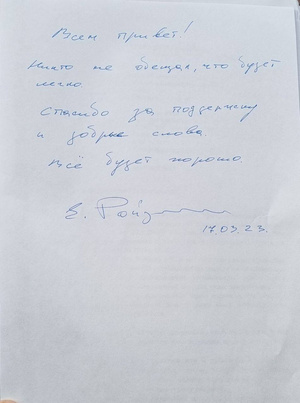 Всем привет!
Никто не обещал, что будет
легко.
Спасибо за поддержку
и добрые слова.
Всё будет хорошо.
Е. Ройзман
17.03.23.